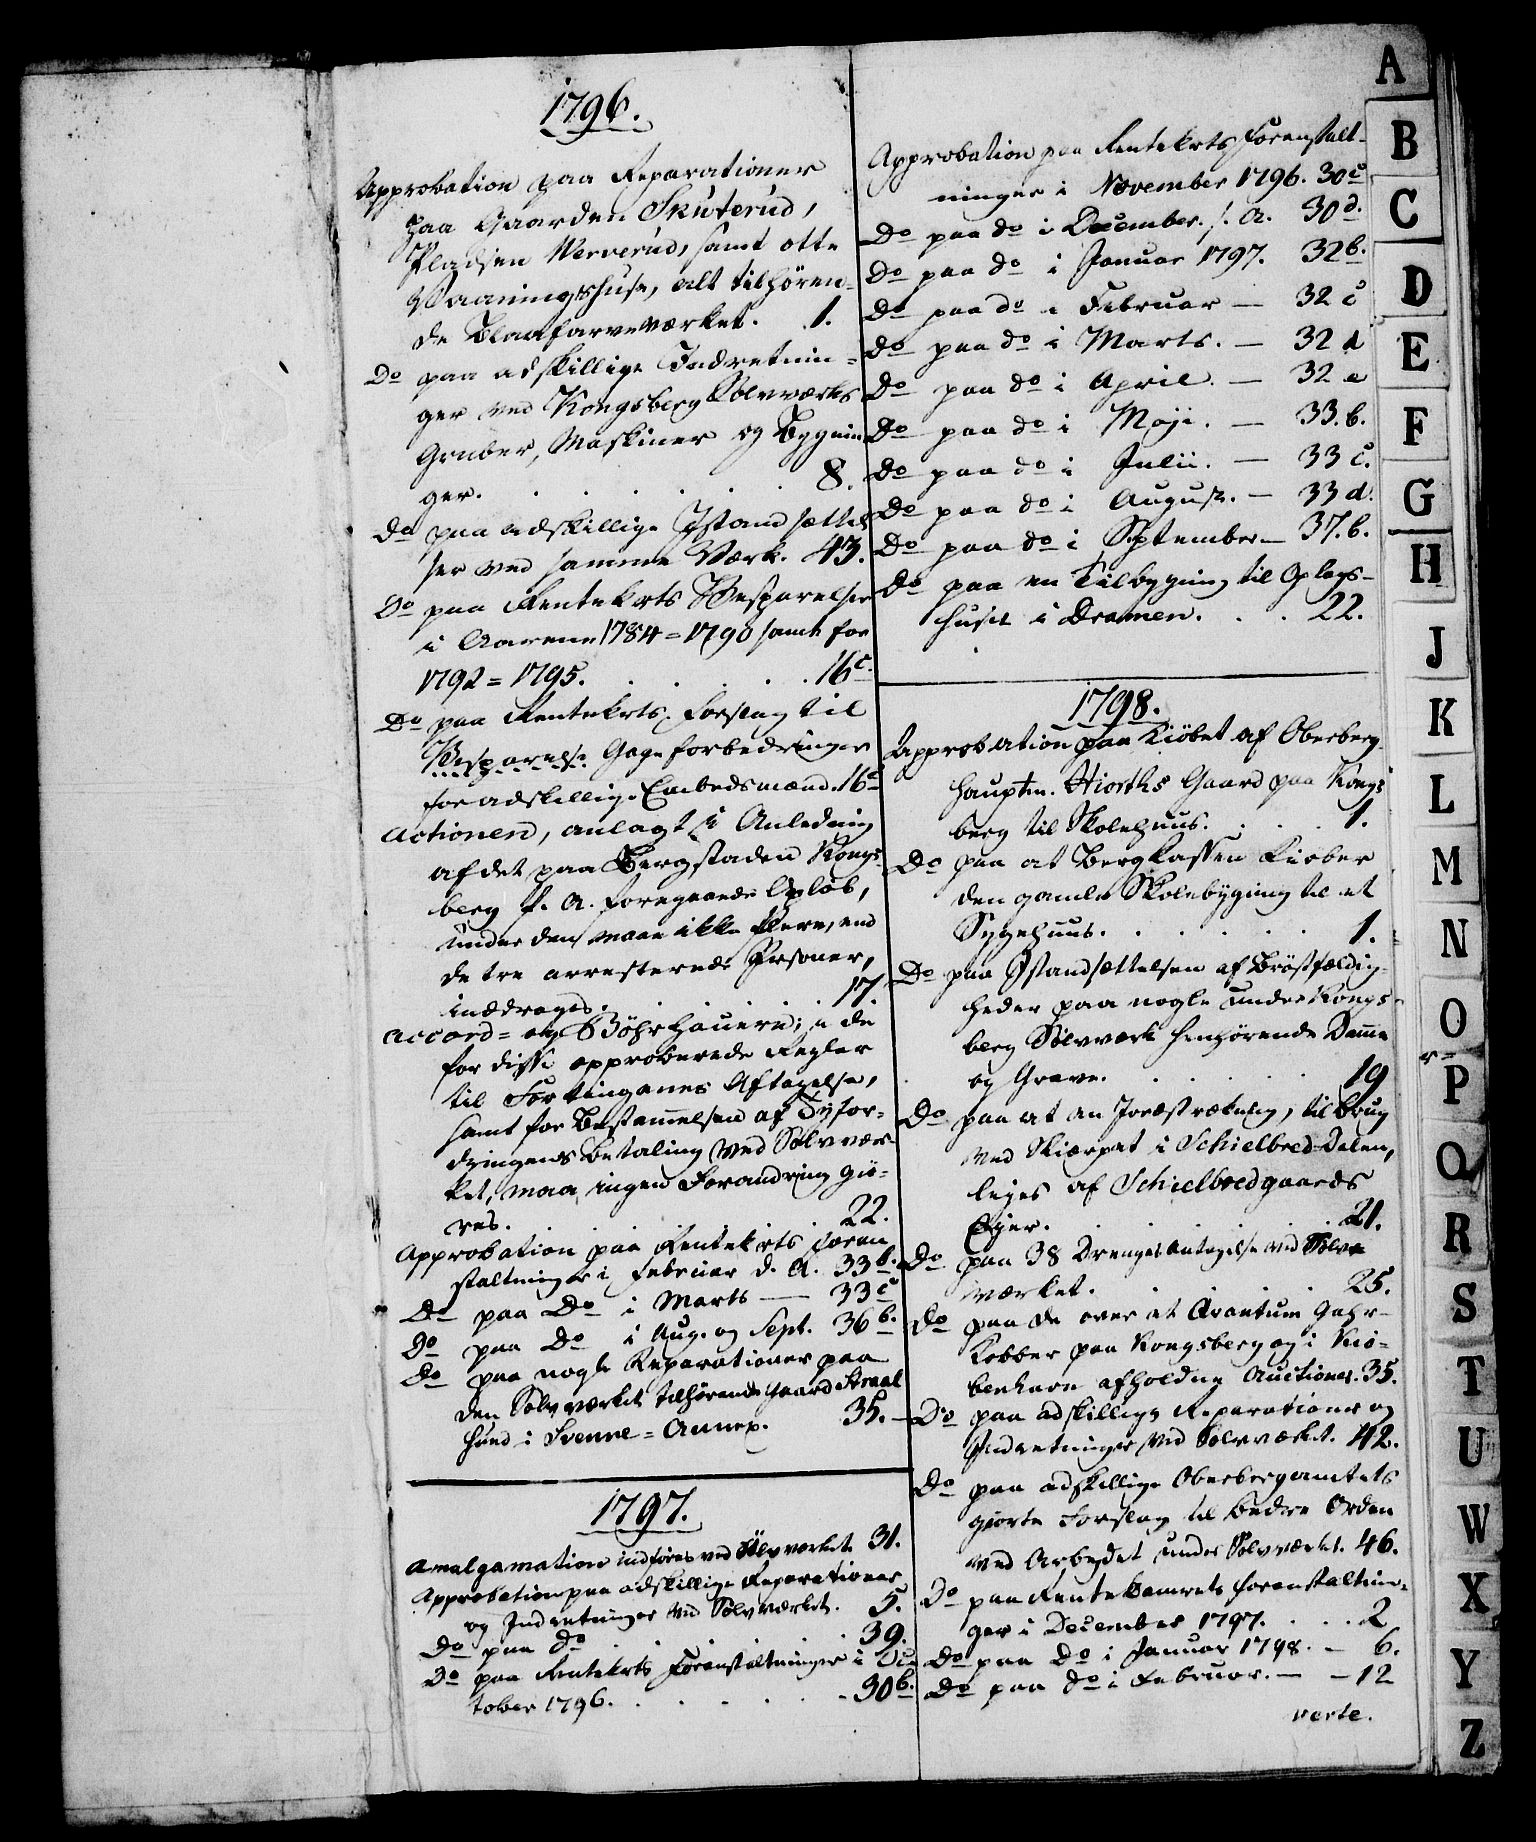 1796.
Approbation paa Reparationer
paa Gaarden Skuterud,
Pladsen Werverud, samt otte
Vaaningshuse, alt tilhøren-
de Blaafarveværket. 1.
Do paa adskillige Indretnin=
ger ved Kongsberg Sølvværks
Gruber, Maskiner og Bygnin
ger. . . . . . . 8.
Do paa adskillige Istandsættel
ser ved samme Værk. 43.
Do paa Rentekrts Besparelser
i Aarene 1784=1790 samt for
1792=1795. . . . . 16c.
Do paa Rentekrts. Forslag til
Gageforbedringer
for adskillige Embedsmænd. 16c
Actionen, anlagt i Anledning
af det paa Bergstaden Kongs-
berg f. A. foregaaede Opløb,
under den maae ikke flere, end
de tre arresterede Personer,
inddrages. 17.
Accord= og Böhrhauere; i de
for disse approberede Regler
til Fortinganes Aftagelse,
samt for Bestemmelsen af
Betaling ved Sølvvær-
ket, maa ingen Forandring giö-
res. 22.
Approbation paa Rentekrts Foran
staltninger i Februar d. A. 33b.
Do paa Do i Marts — 33c
Do paa Do i Aug. og Sept. 36b.
Do paa nogle Reparationer paa
den Sølvværket tilhørende Gaard Straal
sund i Svenne=Annex. 35.
1797.
Amalgamation indføres ved Sølvværket 31.
Approbation paa adskillige Reparationer
og Indretninger ved Sølvværket. 5.
Do paa do . . . . 39.
Do paa Rentekrts Foranstaltninger i Oc-
tober 1796. . . . . . 30b.
Approbation paa Rentekrts Foranstalt-
ninger i November 1796. 30c
Do paa do i December f. A. 30d.
Do paa do i Januar 1797. 32b.
Do paa do i Februar — 32c
Do paa do i Marts. — 32d
Do paa do i April. — 32e
Do paa do i Maji. — 33.b.
Do paa do i Julii. — 33c.
Do paa do i August. — 33d.
Do paa do i September — 37.b.
Do paa en Tilbygning til Oplags-
huset i Dramen. . . 22.
1798.
Approbation paa Kiöbet af Oberberg
hauptm. Hiorths Gaard paa Kongs
berg til Skolehuus. . . . 1.
Do paa at Bergkassen kiøber
den gamle Skolebygning til et
Sygehuus. . . . . . 1.
Do paa Istandsættelsen af Bröstfældig-
heder paa nogle under Kongs-
berg Sølvværk henhørende Damme
og Grave. . . . . . 19
Do paa at en Jordstrækning, til Brug
ved Skiærpet i Schielbred-Dalen,
lejes af Schielbredgaards
Ejer. . . . . . 21.
Do paa 38 Drenges Antagelse ved Sølv-
værket. . . . . 25.
Do paa de over et Qvantum Gahr-
Kobber paa Kongsberg og i Kiö-
benhavn afholdne Auctioner. 35.
Do paa adskillige Reparationer og
Indretninger ved Sølvværket. 42.
Do paa adskillige Oberbergamtets
giorte Forslag til bedre Orden
ved Arbejdet under Sølvværket. 46.
Do paa Rentekamrets Foranstaltnin-
ger i December 1797. . . . 2
Do paa Do i Januar 1798. — 6.
Do paa do i Februar. — 12
verte.
A
B
C
D
E
F
G
H
J
K
L
M
N
O
P
Q
R
S
T
U
W
X
Y
Z